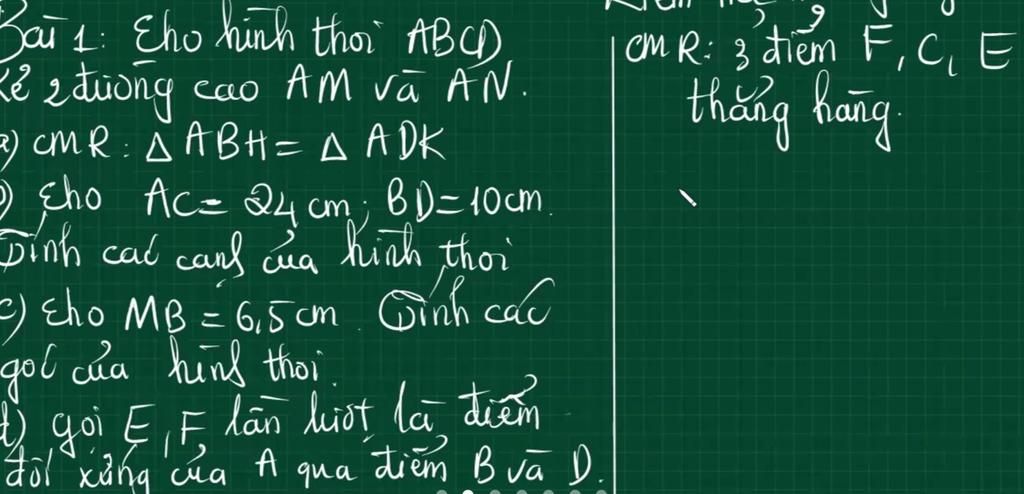 Bài 1: Cho hình thoi ABCD
Kẻ 2 đường cao AM và AN.
a) CMR: Δ ABH = Δ ADK
b) Cho AC = 24 cm; BD = 10cm.
Tính các cạnh của hình thoi
c) Cho MB = 6,5 cm. Tính các
góc của hình thoi.
d) gọi E, F lần lượt là điểm
đối xứng của A qua điểm B và D.
CMR: 3 điểm F, C, E
thẳng hàng.